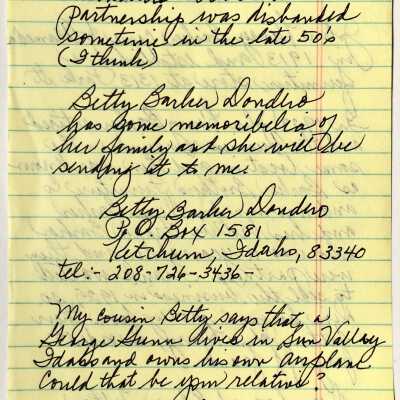 Partnership was disbanded
sometime in the late 50's
(I think)
Betty Barker Dondero
has some memoribelia of
her family and she will be
sending it to me.
Betty Barker Dondero
P.O. Box 1581
Ketchum, Idaho, 83340
tel:- 208-726-3436-
My cousin Betty says that a
George Gunn lives in Sun Valley
Idaho and owns his own airplane
Could that be your relative?